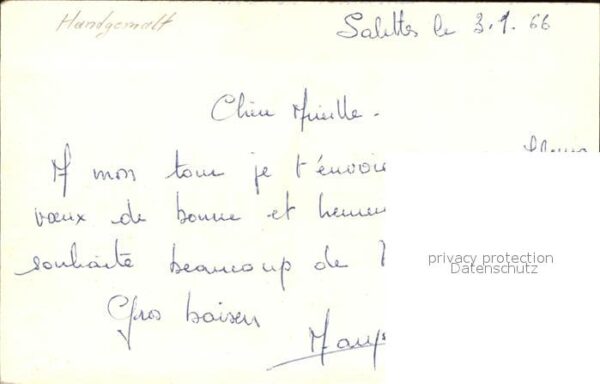 Handgemalt
Salettes le 3.1.66
Chère Mireille.
A mon tour je t'envoie
voeux de bonne et
souhaite beaucoup de
privacy protection
Datenschutz
Gros baisers